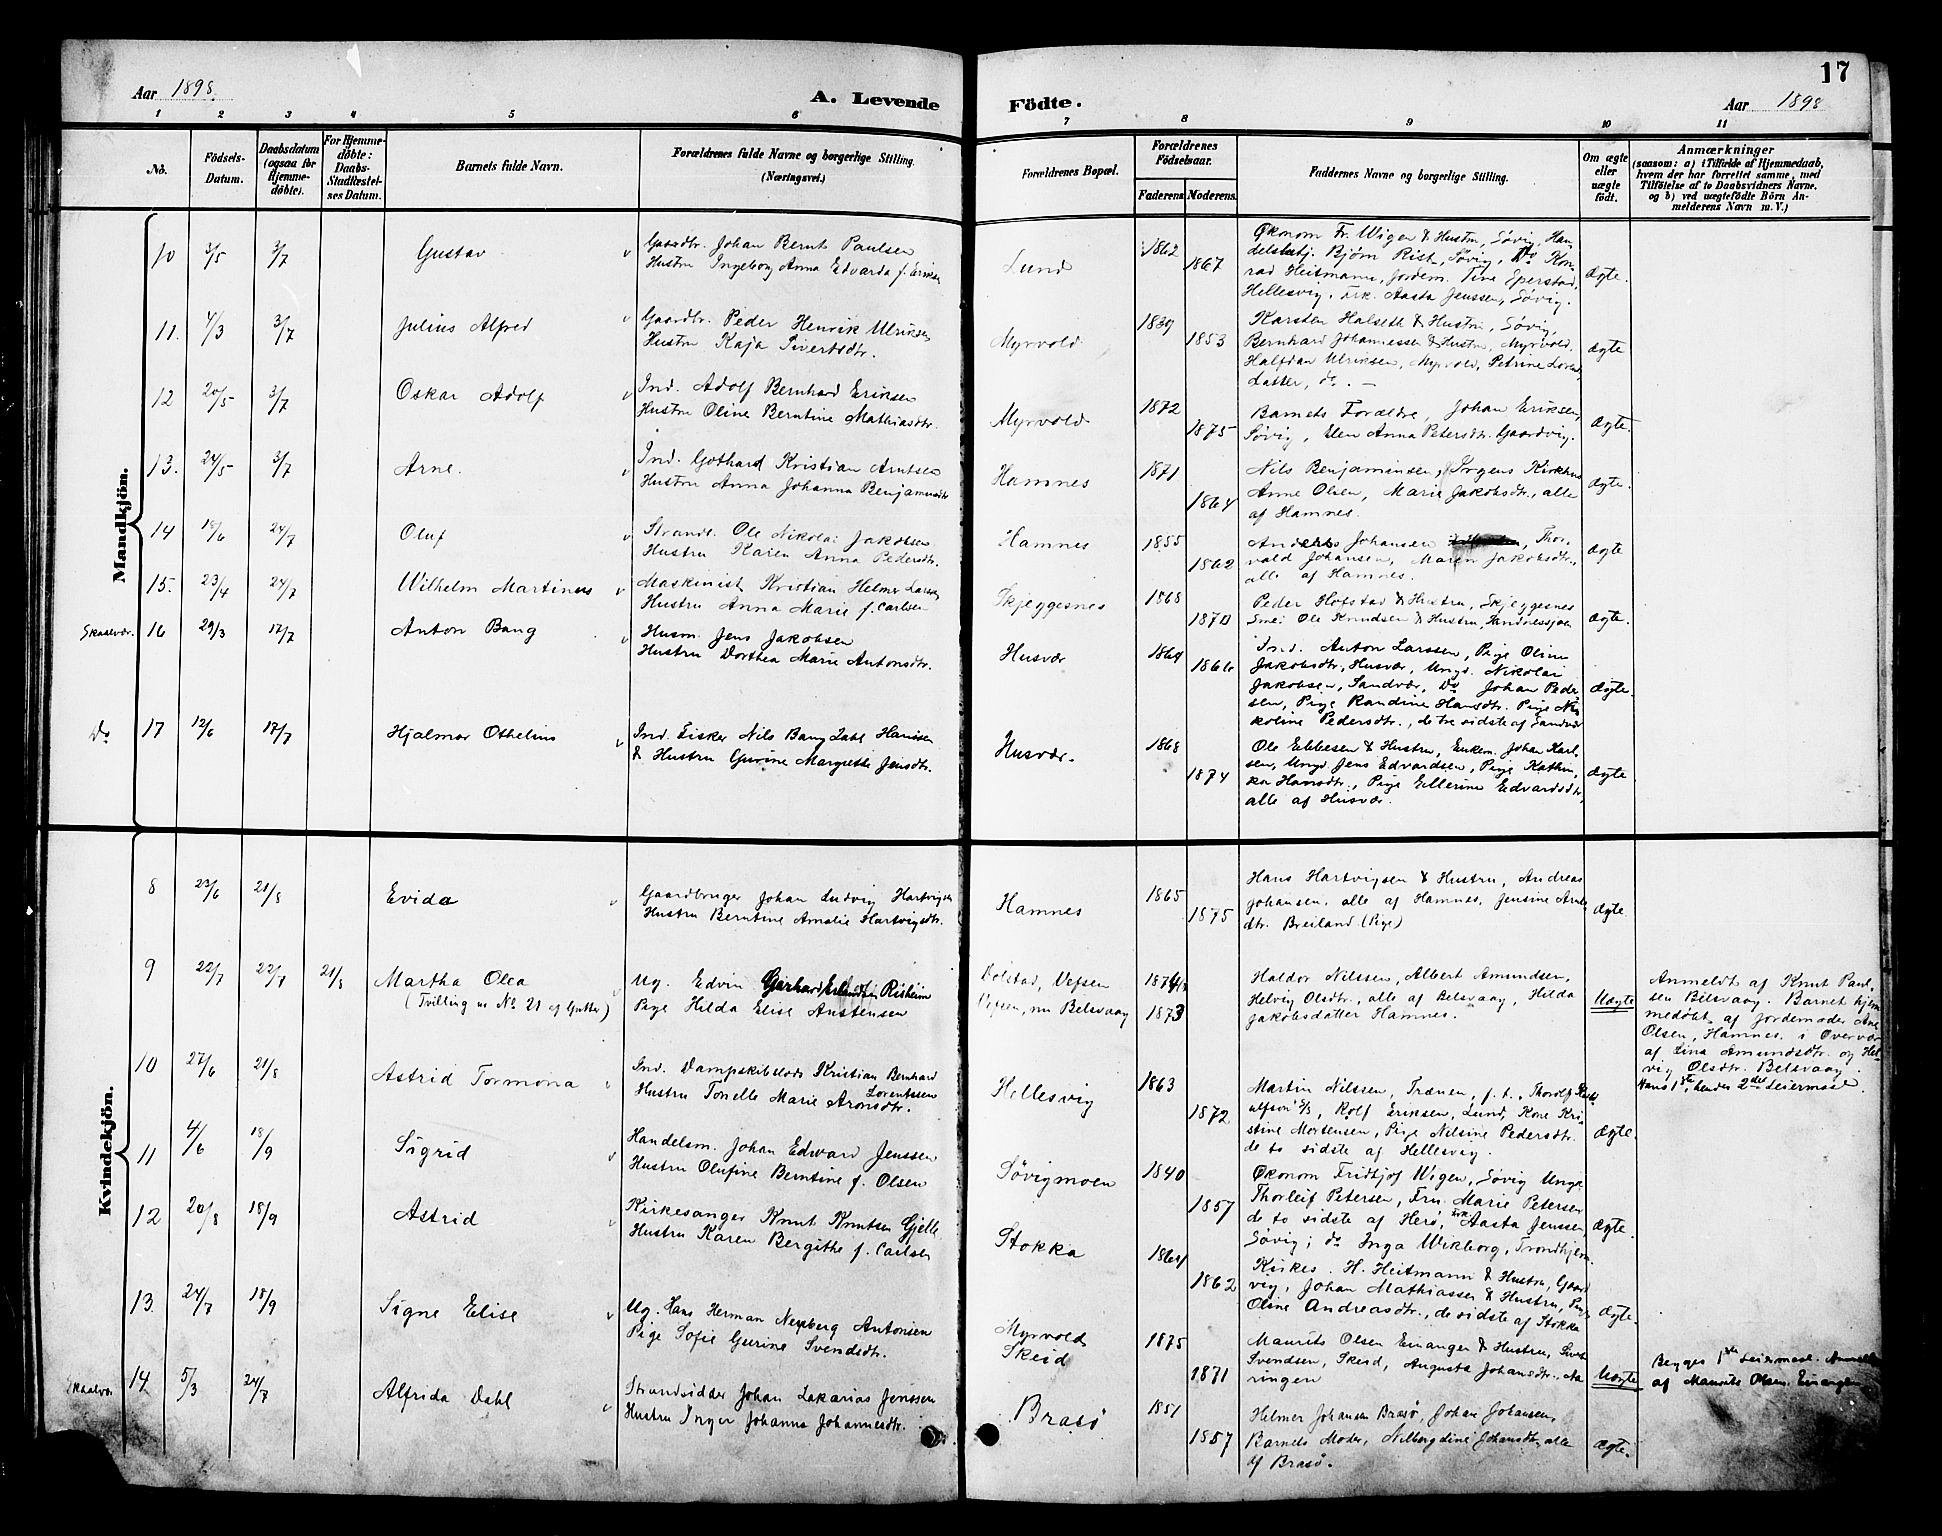 17
Aar 1898.
A. Levende
Födte.
Aar 1898
1 2 3 4 5 6
7 8 9 10 11
No.
Födsels-
Datum.
Daabsdatum
(ogsaa for
Hjemme-
döbte).
For Hjemme-
döbte:
Daabs-
Stadfæstel-
ses Datum.
Barnets fulde Navn.
Forældrenes fulde Navne og borgerlige Stilling.
(Næringsvei.)
Forældrenes Bopæl.
Forældrenes
Födselsaar.
Faderens
Moderens.
Faddernes Navne og borgerlige Stilling.
Om ægte
eller
uægte
födt.
Anmærkninger
(saasom: a) i Tilfælde af Hjemmedaab,
hvem der har forrettet samme, med
Tilföielse af to Daabsvidners Navne.
og b) ved uægtefödte Börn An-
melderens Navn m. V.)
Mandkjön.
10 3/5 3/7 Gustav
Gaardbr. Johan Bernt Paulsen
Hustru Ingeborg Anna Edvarda f. Eriksen
Lund 1862 1867
Økonom Fr. Wigen & Hustru, Søvig, Han-
delsbetj. Bjørn Rist, Søvig, Do Kon-
rad Heitmann, Jordem. Tine Eperstad,
Hellesvig, Frk. Aasta Jenssen, Søvig.
Ægte.
11. 4/3 3/7 Julius Alfred
Gaardbr. Peder Henrik Ulriksen
Hustru Kaja Sivertsdtr.
Myrvold 1839 1853
Karsten Halseth & Hustru, Søvig,
Bernhard Johannessen & Hustru, Myrvold,
Halfdan Ulriksen, Myrvold, Petrine Lorents
datter, do. —
Ægte
12 20/5 3/7 Oskar Adolf
Ind. Adolf Bernhard Eriksen
Hustru Oline Berntine Mathiasdtr.
Myrvold 1872 1875
Barnets Forældre, Johan Eriksen,
Søvig, Anna Petersdtr. Gaardvig.
Ægte.
13. 24/5 3/7 Arne.
Ind. Gothard Kristian Arntsen
Hustru Anna Johanna Benjaminsdtr
Hamnes 1871 1864
Nils Benjaminsen, Jrgens Kirkhus
Anne Olsen, Marie Jakobsdtr., alle
af Hamnes.
Ægte.
14 18/6 24/7 Oluf
Strands. Ole Nikolai Jakobsen
Hustru Karen Anna Pedersdtr.
Hamnes 1855 1862
Anders Johansen, Thor-
vald Johansen, Maren Jakobsdtr.,
alle af Hamnes.
Ægte
15. 23/4 24/7 Wilhelm Martinus
Maskinist Kristian Helmer Larsen
Hustru Anna Marie f. Carlsen
Skjeggesnes 1868 1870
Peder Hofstad & Hustru, Skjeggesnes
Smed Ole Knudsen & Hustru, Sandnessjøen
Ægte.
Skaalvær. 16 29/3 17/7 Anton Bang
Husm. Jens Jakobsen
Hustru Dorthea Marie Antonsdtr.
Husvær 1864 1866
Ind. Anton Larssen, Pige Oline
Jakobsdtr, Husvær, Ungd. Nikolai
Jakobsen, Sandvær, Do Johan Peder-
sen, Pige Randine Hansdtr. Pige Ni-
koline Pedersdtr., de tre sidste af Sandvær
Ægte.
Do 17 12/6 17/7 Hjalmar Othelius
Ind. Fisker Nils Bang Dahl Hansen
& Hustru Gurine Margrethe Jensdtr.
Husvær. 1868 1874
Ole Ebbesen & Hustru, Enkem. Johan Karl-
sen, Ungd. Jens Edvardsen, Pige Kathin-
ka Hansdtr., Pige Ellerine Edvardsdtr,
alle af Husvær.
Ægte
Kvindekjön.
8 23/6 21/8 Evida
Gaardbruger Johan Ludvig Hartvigsen
Hustru Berntine Amalie Hartvigsdtr.
Hamnes 1865 1875
Hans Hartvigsen & Hustru, Andreas
Johansen, alle af Hamnes, Jensine Arnts-
dtr. Breiland (Pige)
Ægte
9 22/7 22/7 21/8 Martha Olea
(Tvilling m No. 21 af Gutter)
Ug. Edvin Gerhard Erlandsen Risheim
Pige Hilda Elise Austensen
Dolstad, Vefsen
Vefsen, nu Belsvaag 1873
Haldor Nilssen, Albert Amundsen,
Helvig Olsdtr., alle af Belsvaag, Hilda
Jakobsdatter Hamnes.
Uægte
Anmeldt af Knut Paul-
sen Belsvaag. Barnet hjem-
medøbt af Jordemoder Ane
Olsen, Hamnes i Overvær
af Lina Amundsdtr. og Hel-
vig Olsdtr. Belsvaag.
Hans 1ste, hendes 2det Leiermaal.
10 27/6 21/8 Astrid Tormona
Ind. Dampskibslods Kristian Bernhard
Lorentssen
Hustru Tonelle Marie Aronsdtr.
Hellesvig 1863 1872
Martin Nilssen, Trænen, f. t., Thorolf
Rolf Eriksen, Lund, Kone Kri-
stine Mortensen, Pige Nilsine Pedersdtr.
de to sidste af Hellesvig.
Ægte.
11 4/6 18/9 Sigrid
Handelsm. Johan Edward Jenssen
Hustru Olufine Berntine f. Olsen
Søvigmoen 1840 1857
Økonom Fridtjof Wigen, Søvig Ungk.
Thorleif Petersen, Fru Marie Petersen
de to sidste af Herø, Frk. Aasta Jenssen,
Søvig; do Inga Wikborg, Trondhjem.
Ægte.
12 20/8 18/9 Astrid
Kirkesanger Knut Knutsen Gjelle
Hustru Karen Bergithe f. Carlsen
Stokka 1864 1862
Kirkes. H. Heitmann & Hustru, Gaard-
vig, Johan Mathiassen & Hustru, Pige
Oline Andreasdtr., de sidste af Stokka
Ægte.
13. 24/7 18/9 Signe Elise
Ug. Hans Herman Neuberg Antonsen
Pige Sofie Gurine Svendsdtr.
Myrvold
Skeid 1875 1871
Maurits Olsen Einangen & Hustru, Sivert
Svendsen, Skeid, Augusta Johansdtr.,
Uægte
Begges 1ste Leiermaal. Anmeldt
af Maurits Olsen Einangen
Skaalvær 14. 5/3 24/7 Alfrida Dahl
Strandsidder Johan Zakarias Jenssen
Hustru Inger Johanna Johannesdtr.
Brasø 1851 1857
Helmer Johansen Brasø, Johan Johansen,
Barnets Moder, Nelbergdine Johansdtr, alle
af Brasø.
Ægte.